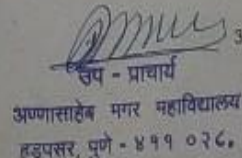 उप - प्राचार्य
अण्णासाहेब मगर महाविद्यालय
हडपसर, पुणे - ४११ ०२८.